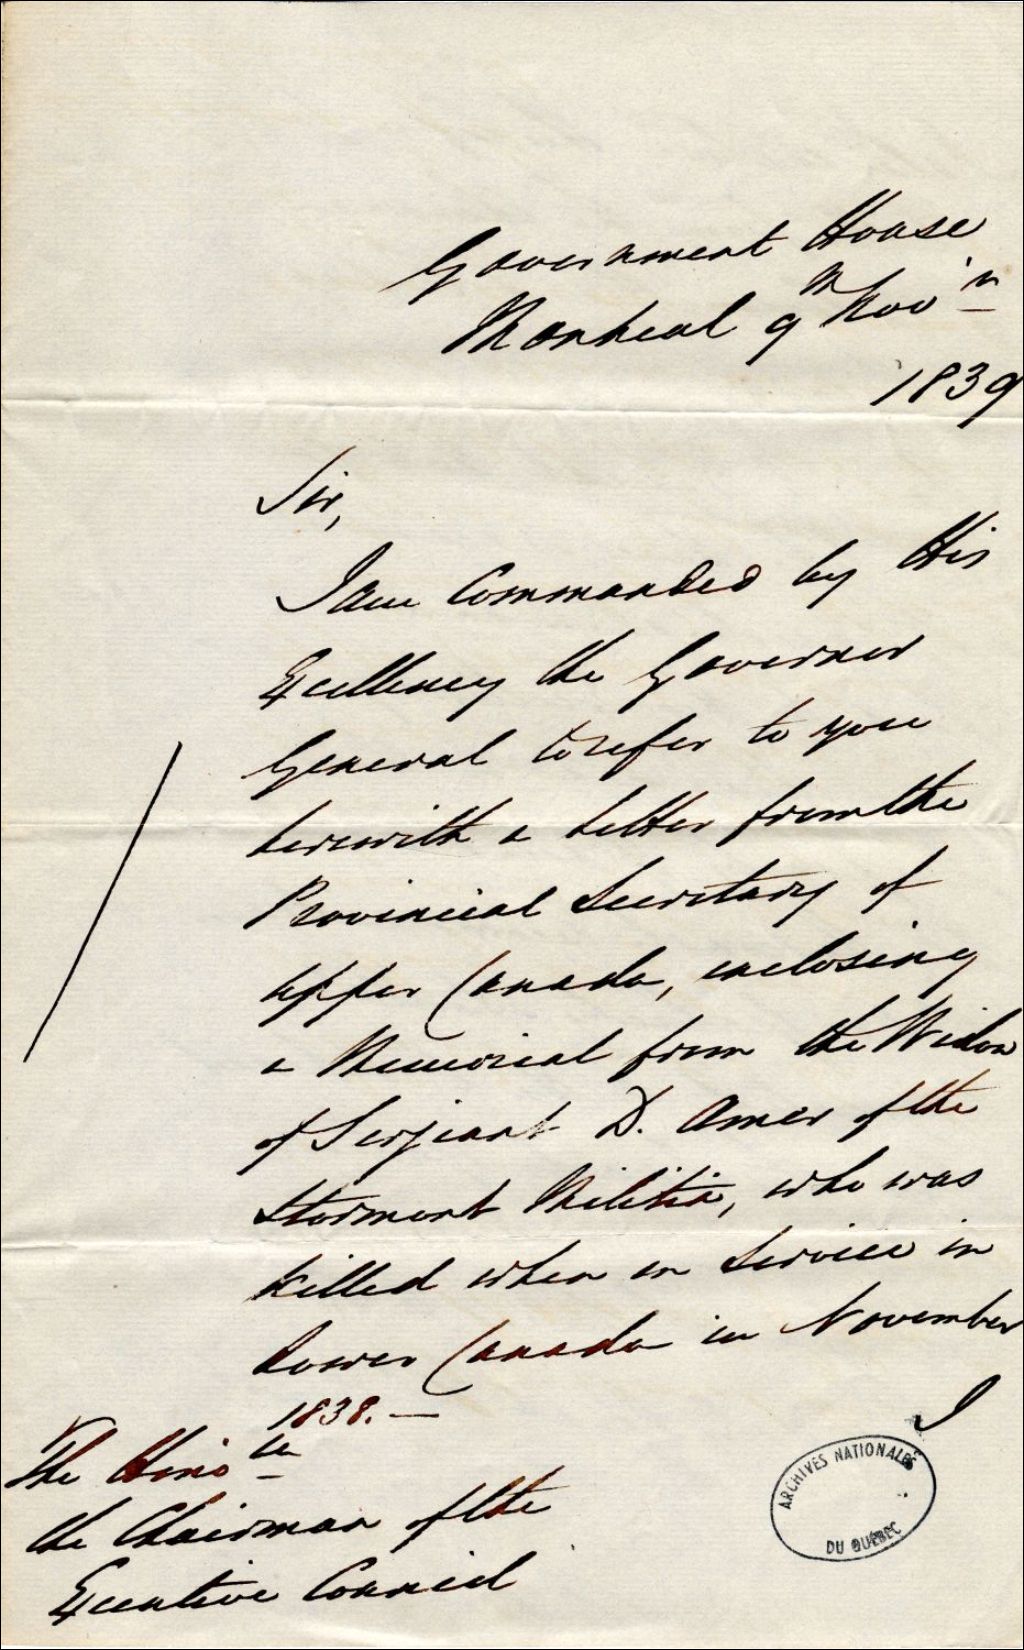 Government House
Montreal 9th Nov'r
1839
Sir,
I am Commanded by His
Excellency the Governor
General to refer to you
herewith a letter from the
Provincial Secretary of
Upper Canada, enclosing
a Memorial from the Widow
of Serjeant D. Amer of the
Stormont Militia, who was
killed when on Service in
Lower Canada in November
1838. —
I
The Hono'ble
the Chairman of the
Executive Council
ARCHIVES NATIONALES
DU QUÉBEC